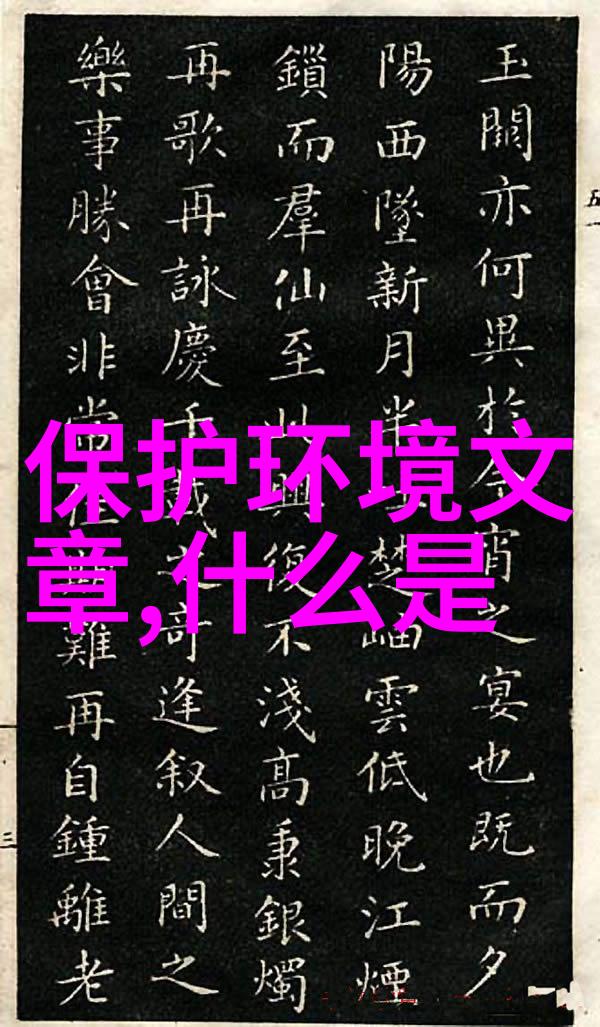 玉關亦何異於今宵之宴也既而夕
陽西墜新月半楚岫雲低晚江煙
鎖而羣仙至此興復不淺高秉銀燭
再歌再詠慶千載之奇逢叙人間之
樂事勝會非常難再自鍾離老
保护环境文
章,什么是